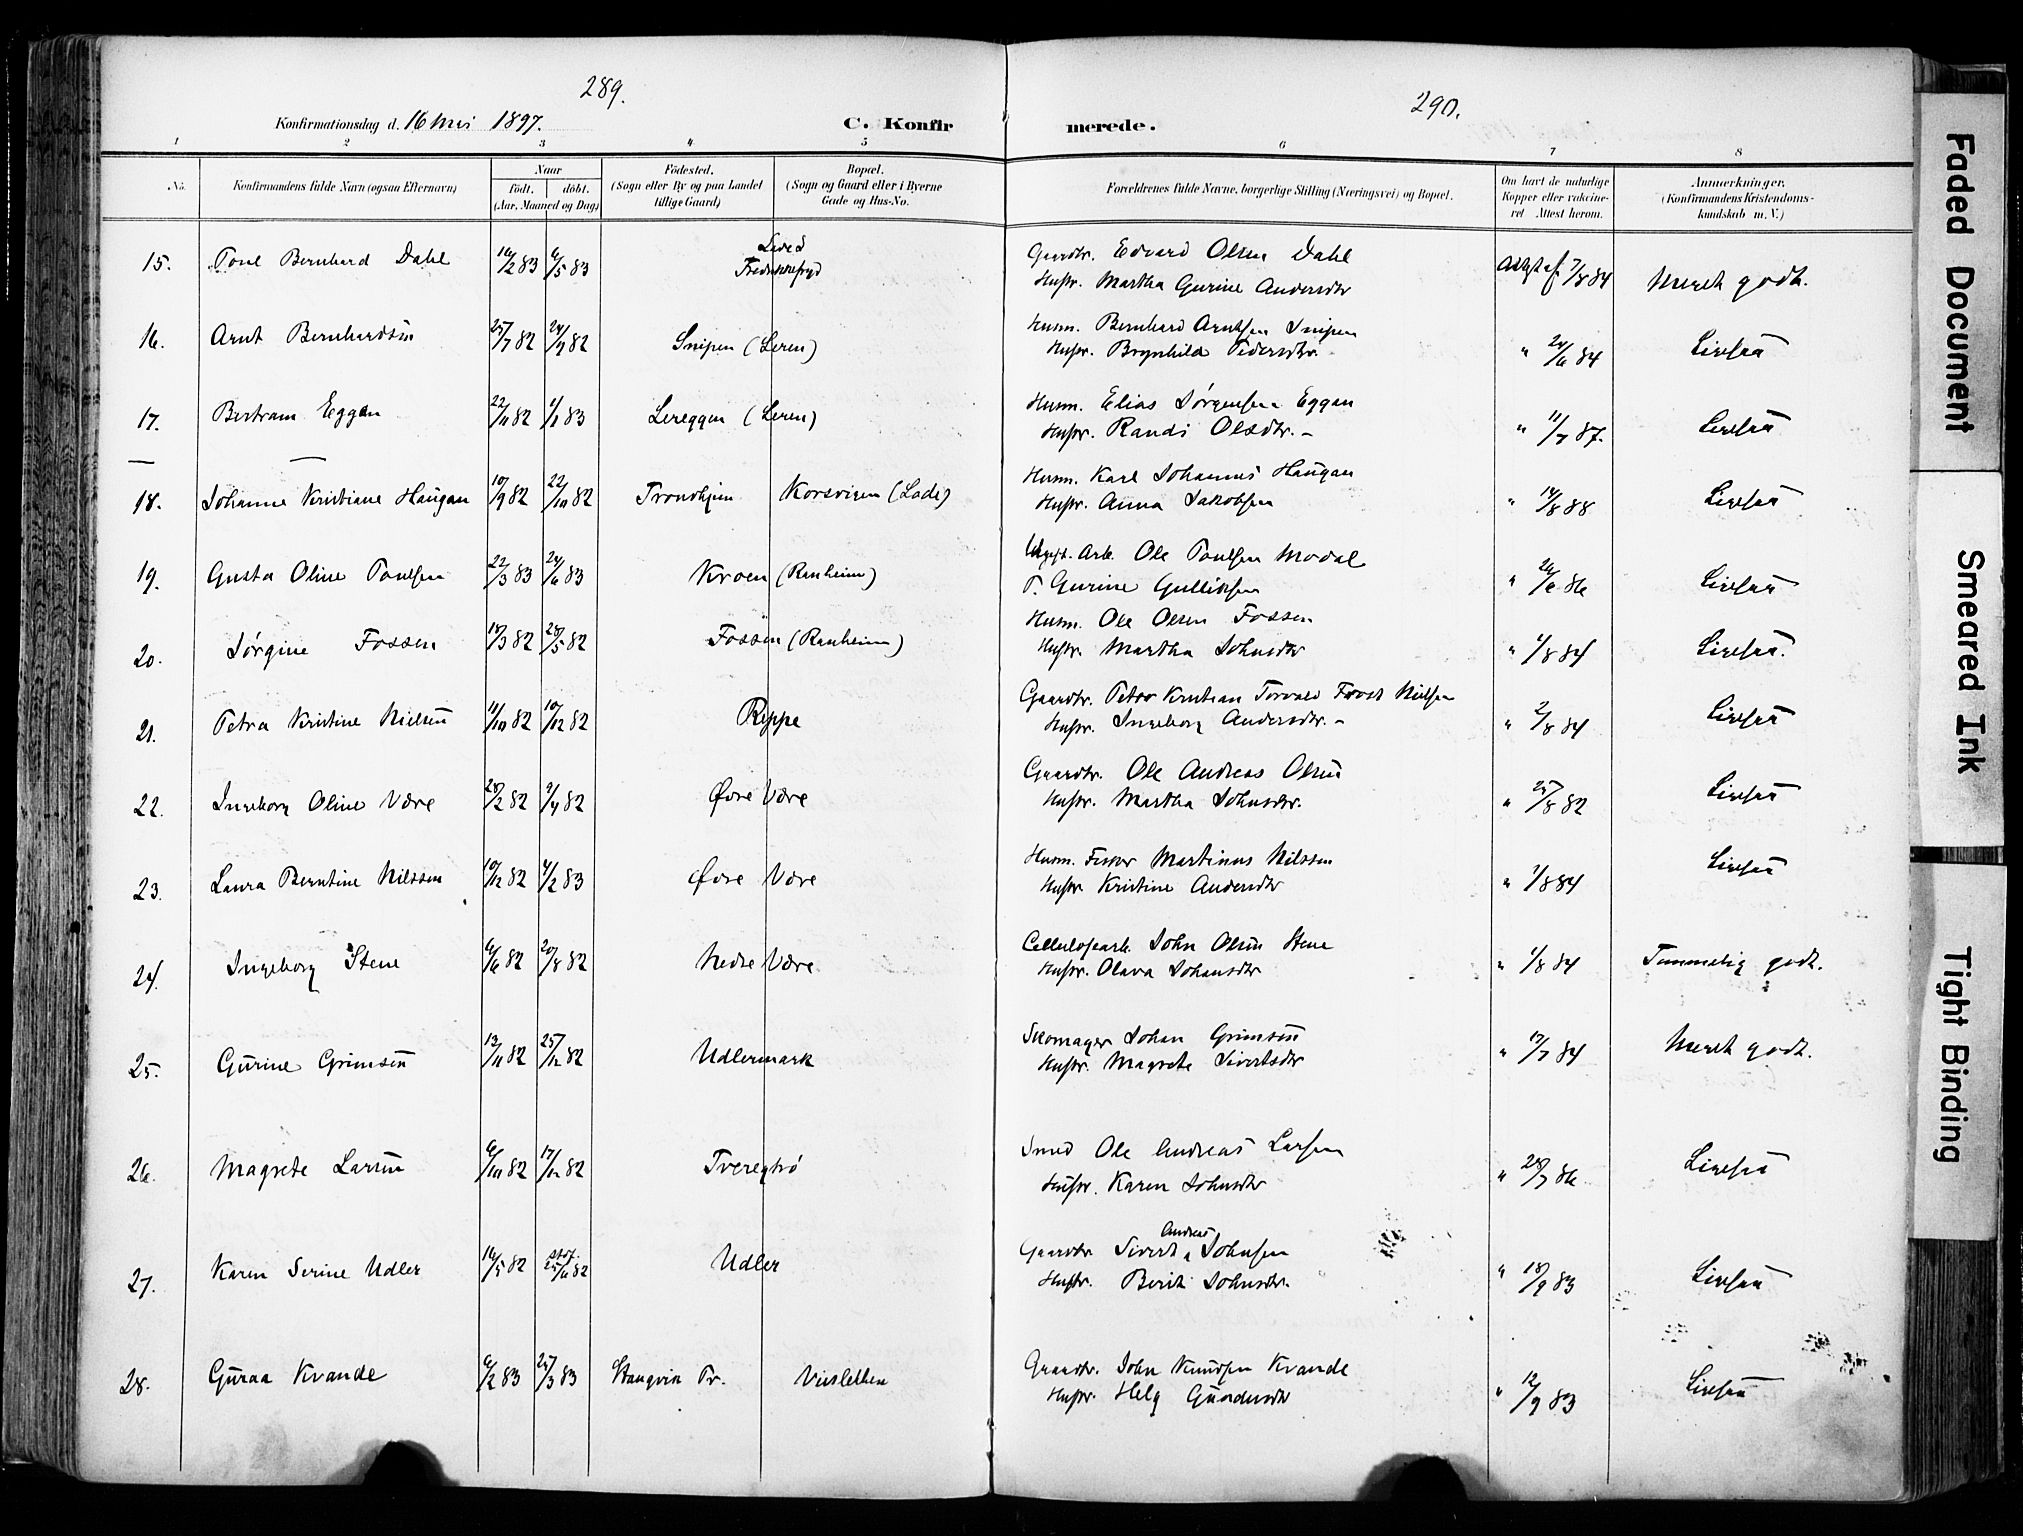 289.
290.
Konfirmationsdag d. 16 Mai 1897.
C. Konfirmerede.
1 2 3 4 5 6 7 8
No.
Konfirmandens fulde Navn (ogsaa Efternavn)
Naar
født. døbt.
(Aar, Maaned og Dag)
Fødested.
(Sogn eller By og paa Landet
tillige Gaard)
Bopæl.
(Sogn og Gaard eller i Byerne
Gade og Hus-No.
Forældrenes fulde Navne, borgerlige Stilling (Næringsvei) og Bopæl.
Om havt de naturlige
Kopper eller vaccine-
ret Attest herom.
Anmærkninger.
(Konfirmandens Kristendoms-
kundskab m. V.)
15. Poul Bernhard Dahl 16/2 83 6/5 83 Gaardbr. Edvard Olsen Dahl
Hustr. Martha Gurine Andersdtr 7/8 84 Meget godt.
16. Arnt Bernhardsen 25/7 82 24/9 82 Snipen (Leren) Husm. Bernhard Arntsen Snipen
Hustr. Brynhild Pedersdtr. " 24/6 84 Ligesaa
17. Bertram Eggen 22/11 82 1/1 83 Lereggen (Leren) Husm. Elias Jørgensen Eggan
Hustr. Randi Olsdtr. " 11/7 87. Ligesaa
18. Johanne Kristiane Haugan 10/9 82 22/10 82 Trondhjem Korsvigen (Lade) Husm. Karl Johannes Haugan
Hustr. Anna Jakobsen " 14/8 88 Ligesaa
19. Gusta Oline Poulsen 22/3 83 24/6 83 Kroen (Ranheim) Ugift. Arb. Ole Poulsen Modal
P. Gurine Gulliksen " 24/6 86 Ligesaa
20. Jørgine Fossen 18/3 82 28/5 82 Fossen (Ranheim) Husm. Ole Olsen Fossen
Hustr. Martha Johnsdtr " 1/8 84 Ligesaa.
21. Petra Kristine Nielsen 11/10 82 10/12 82 Reppe Gaardbr. Peter Kristian Torvald Frost Nielsen
Hustr. Ingeborg Andersdtr. " 2/8 84 Ligesaa
22. Ingeborg Oline Være 28/2 82 9/4 82 Øvre Være Gaardbr. Ole Andreas Olsen
Hustr. Martha Johnsdtr. " 25/8 82 Ligesaa
23. Laura Berntine Nilssen 10/12 82 4/2 83 Øvre Være Husm. Fisker Martinus Nilssen
Hustr Kristine Andersdtr " 1/8 84 Ligesaa
24. Ingeborg Stene 6/6 82 20/8 82 Nedre Være Cellulosearb. John Olsen Stene
Hustr. Olava Johansdtr " 1/8 84 Temmelig godt.
25. Gurine Grimsen 13/11 82 25/12 82 Udlermark Skomager Johan Grimsen
Hustr. Magrete Sivertsdtr " 17/7 84 Meget godt.
26. Magrete Larsen 6/10 82 17/12 82 Tveregtrø Smed Ole Andreas Larsen
Hustr. Karen Johnsdtr " 28/7 86 Ligesaa
27. Karen Serine Udler 16/5 82 stdf. 25/6 82 Udler Gaardbr Sivert Andreas Johnsen
Hustr. Berit Johnsdtr. " 18/9 83 Ligesaa
28. Guraa Kvande 6/2 83 25/3 83 Stangvik Pr. Visletten Gaardbr. John Knudsen Kvande
Hustr. Helg Gundersdtr " 12/9 83 Ligesaa
Faded Document
Smeared Ink
Tight Binding